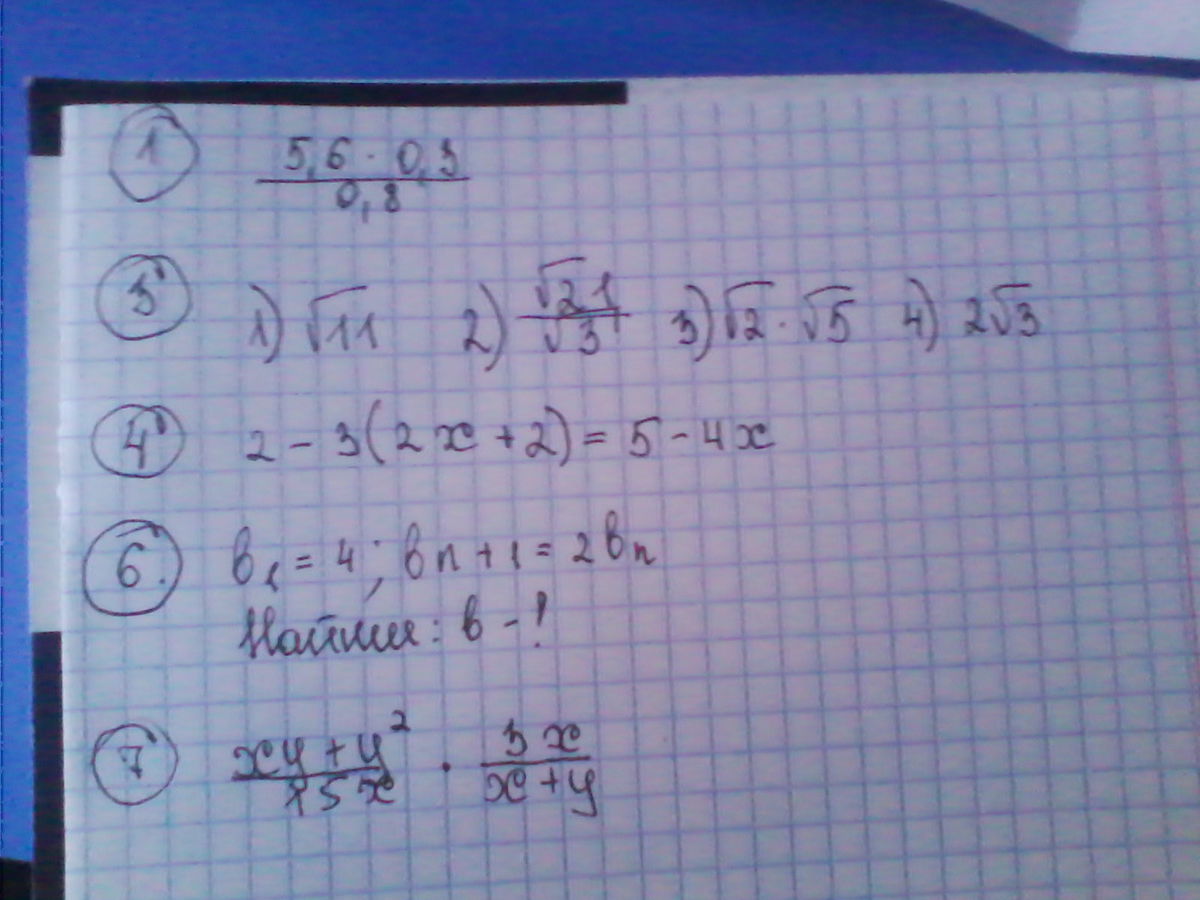 1 5,6 · 0,3 / 0,8
3 1) √11 2) √21 / √3 3) √2 · √5 4) 2√3
4 2 - 3(2x + 2) = 5 - 4x
6. b₁ = 4; bn + 1 = 2bn
Найти: b - !
7 xy + y² / 15x · 3x / x + y